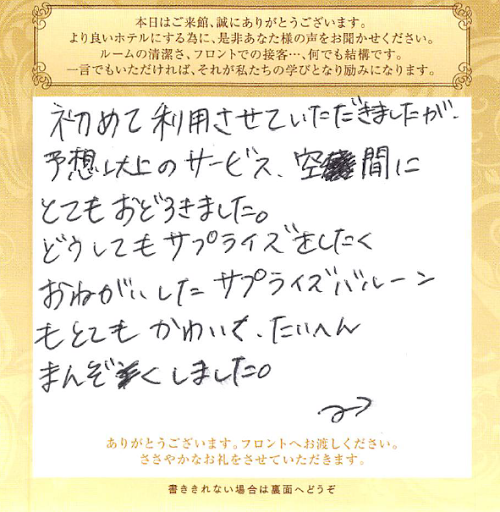 本日はご来館、誠にありがとうございます。
より良いホテルにする為に、是非あなた様の声をお聞かせください。
ルームの清潔さ、フロントでの接客…、何でも結構です。
一言でもいただければ、それが私たちの学びとなり励みになります。
初めて利用させていただきましたが、
予想以上のサービス、空間に
とてもおどろきました。
どうしてもサプライズをしたく
おねがいしたサプライズバルーン
もとてもかわいく、たいへん
まんぞくしました。
ありがとうございます。フロントへお渡しください。
ささやかなお礼をさせていただきます。
書ききれない場合は裏面へどうぞ